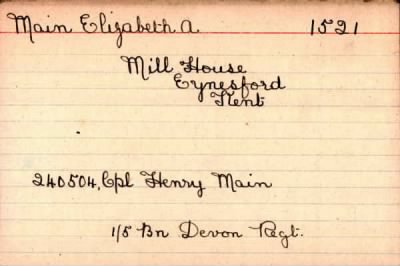 Main Elizabeth A. 1521
Mill House
Eynesford
Kent
240504, Cpl Henry Main
1/5 Bn Devon Regt.